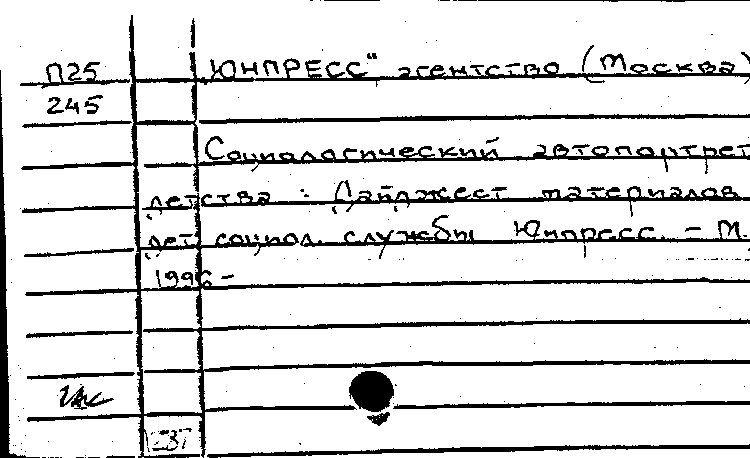 П25 ЮНПРЕСС" агентство (Москва)
245
Социологический автопортрет
детства : Дайджест материалов
дет. социол. службы Юнпресс. – М.,
1996 –